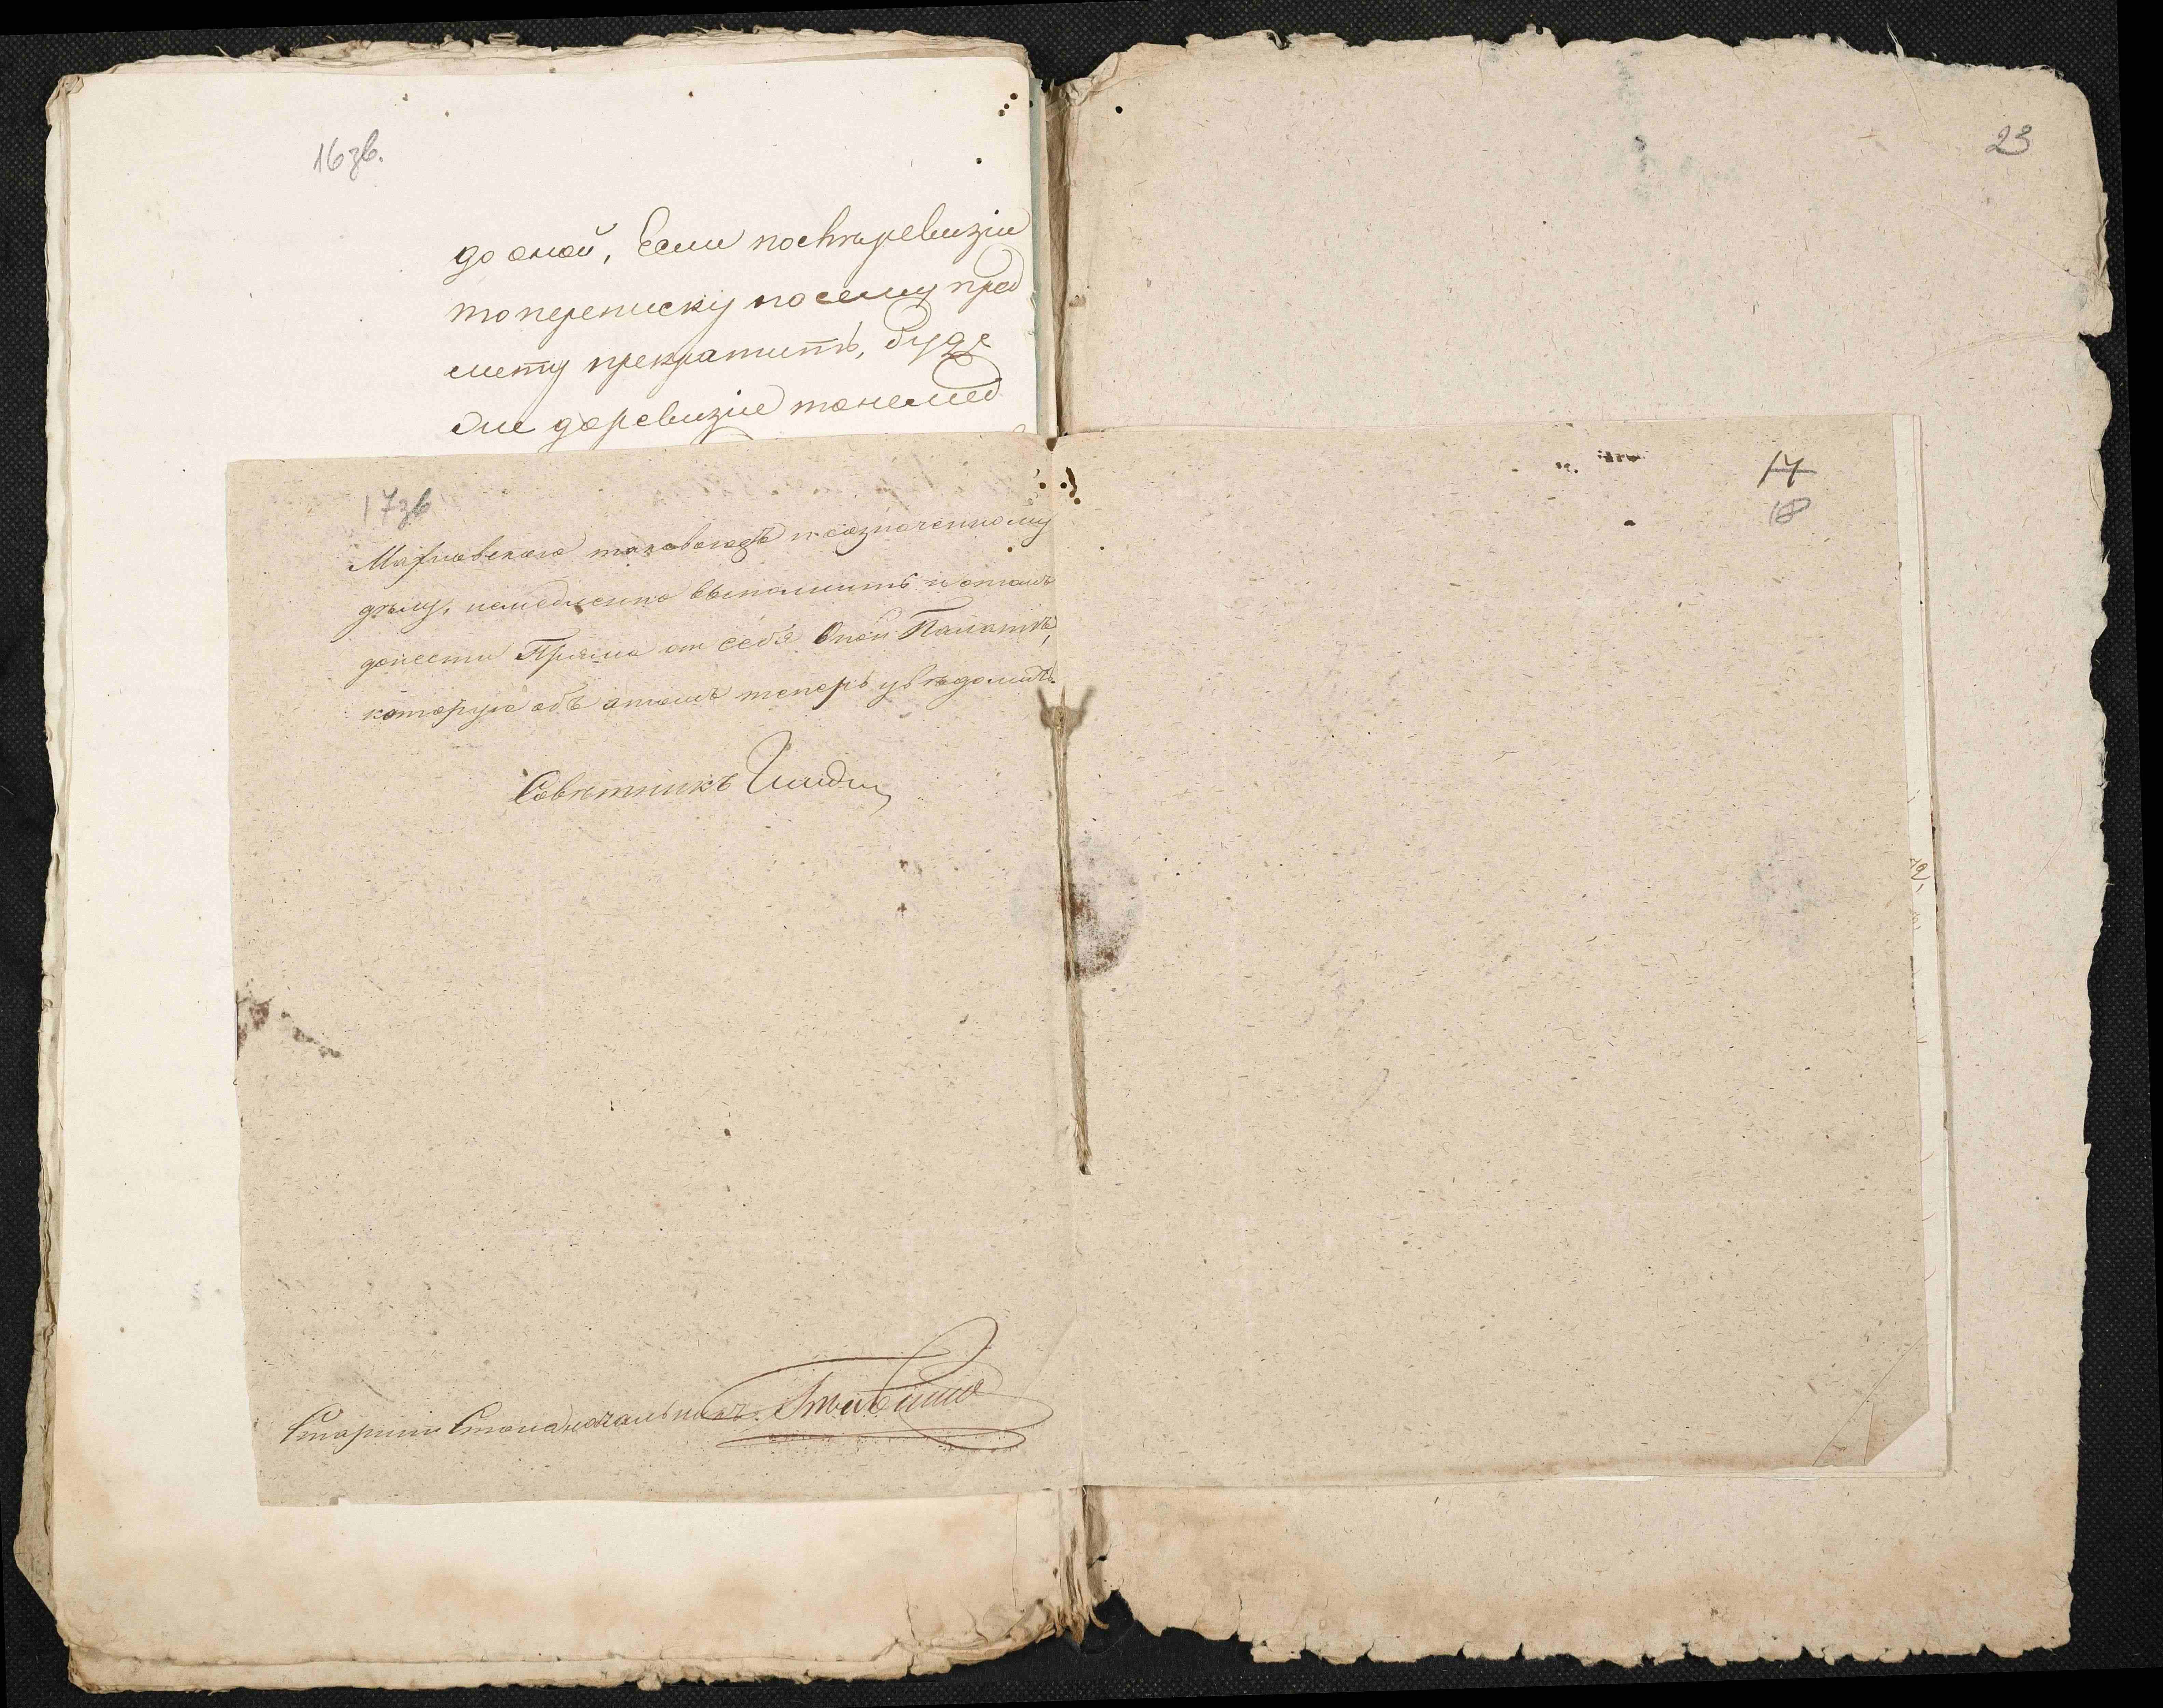 16 зв.
до оной, Если после ревизіи
то переписку по сему пред
мету прекратить, буде
же до ревизіи то немед
23
17 зв
таковаго къ означенному
дѣлу, немедленно выполнить и о томъ
донести Прямо отъ себя Оной Палатѣ,
которую объ этомъ теперь увѣдомить.
Совѣтникъ
Старшій Столоначальникъ
17
18